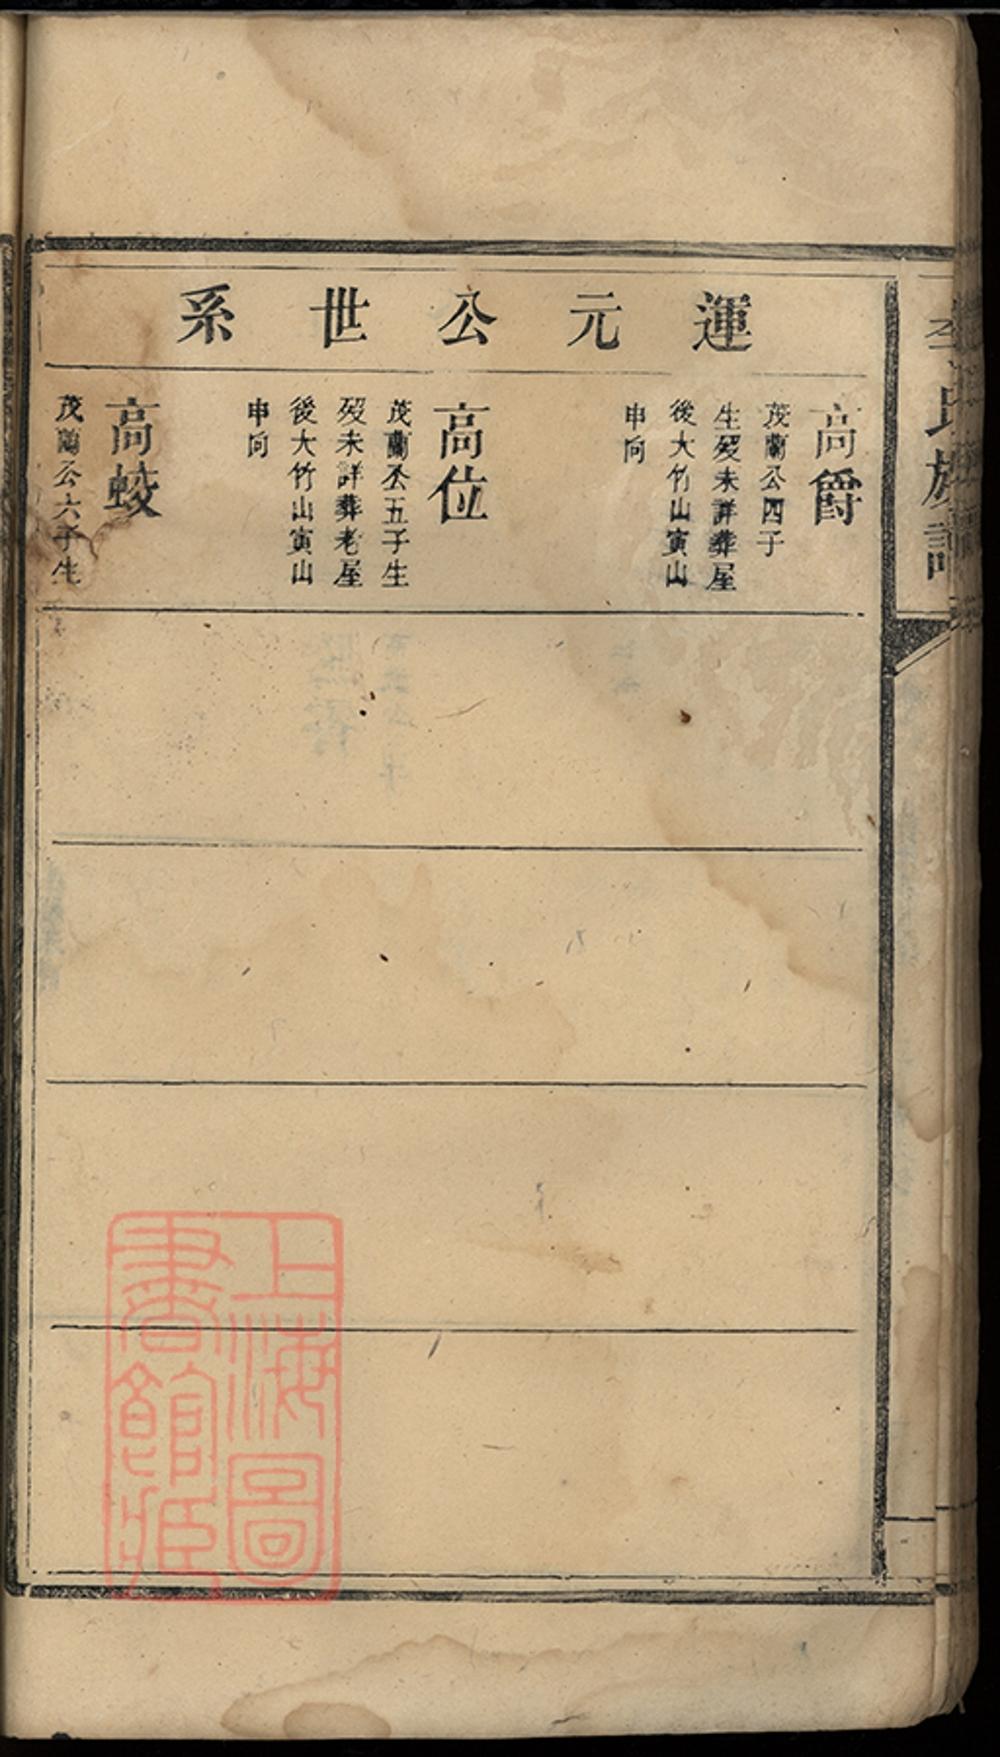 李氏族譜
運元公世系
高爵
茂蘭公四子
生歿未詳葬屋
後大竹山寅山
申向
高位
茂蘭公五子生
歿未詳葬老屋
後大竹山寅山
申向
高蛟
茂蘭公六子生
上海圖
書館藏